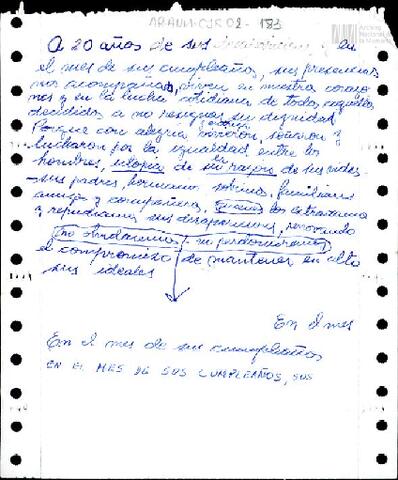 ARANM-CJS02-183
Archivo
Nacional de
la Memoria
A 20 años de sus y en
el mes de sus cumpleaños, sus presencias
nos acompañan, viven en nuestro corazo
nes y en la lucha cotidiana de todos aquellos
decididos a no resignar su dignidad
Porque con alegría vivieron, soñaron y
lucharon por la igualdad entre los
hombres, utopía de sus vidas
sus padres, hermanos sobrino, familiares
amigos y compañeros, los
y repudiamos sus desapariciones, renovando
(no olvidaremos ni perdonaremos)
el compromiso de mantener en alto
sus ideales
En el mes
En el mes de su cumpleaños
EN EL MES DE SUS CUMPLEAÑOS, SUS